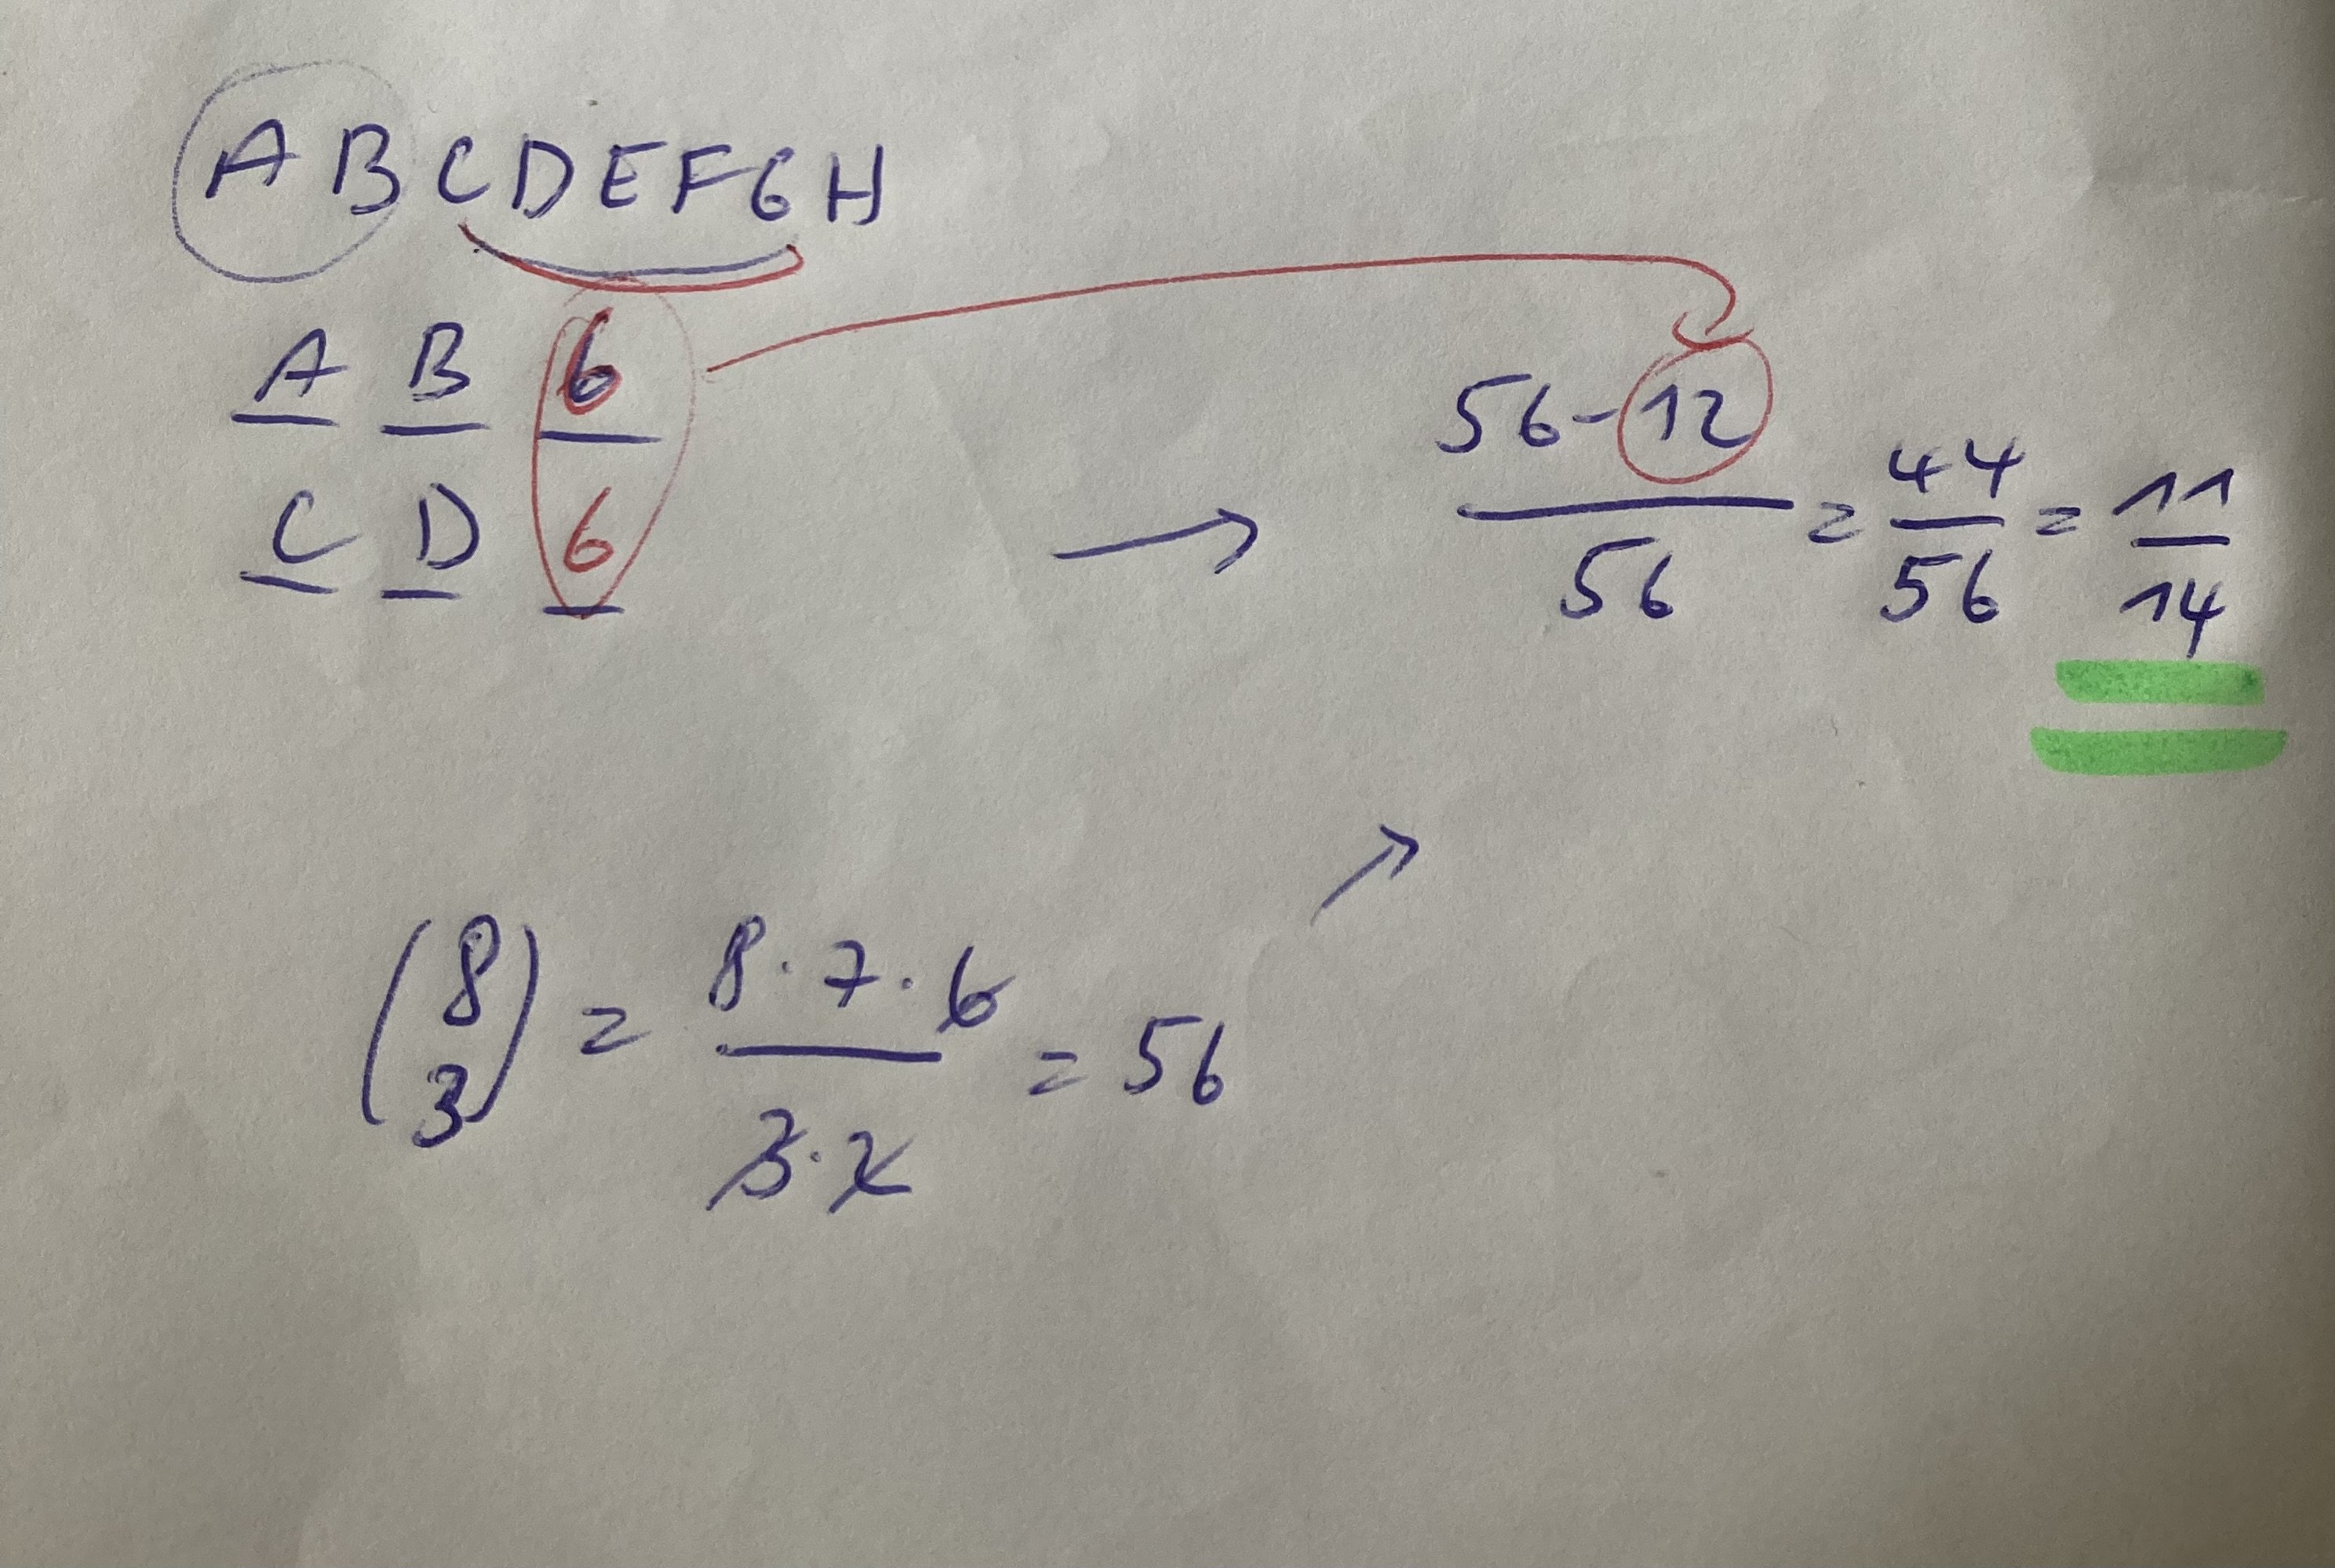 A B C D E F G H
A B 6
C D 6
→ 56-12 / 56 = 44 / 56 = 11 / 14
(8 3) = 8·7·6 / 3·2 = 56 →